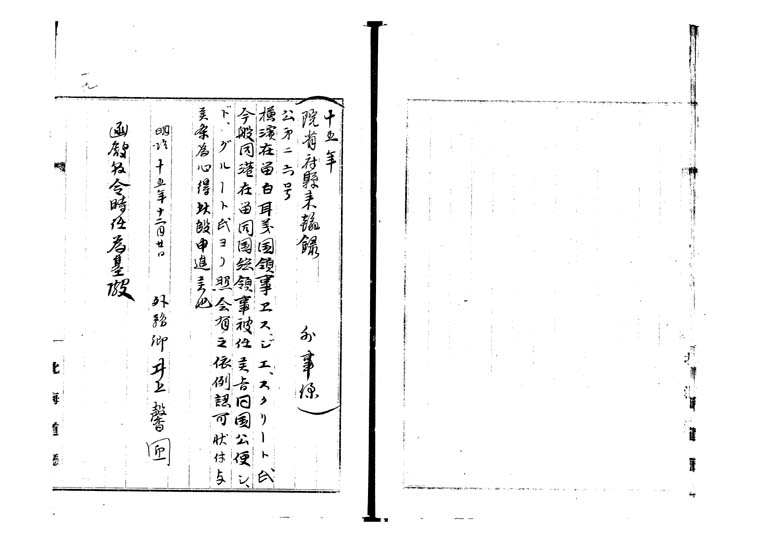 十五年
（院省府縣來輸録　外事係）
公第二六号
横濱在留白耳義国領事エス、ジエ、スクリート氏
今般同港在留同国総領事被任候旨同国公使シ、
ド、グルート氏ヨリ照会有之依例認可状付与
候条為心得此段申進候也
明治十五年十二月廿日　外務卿井上馨
函館県令時任為基殿
北海道